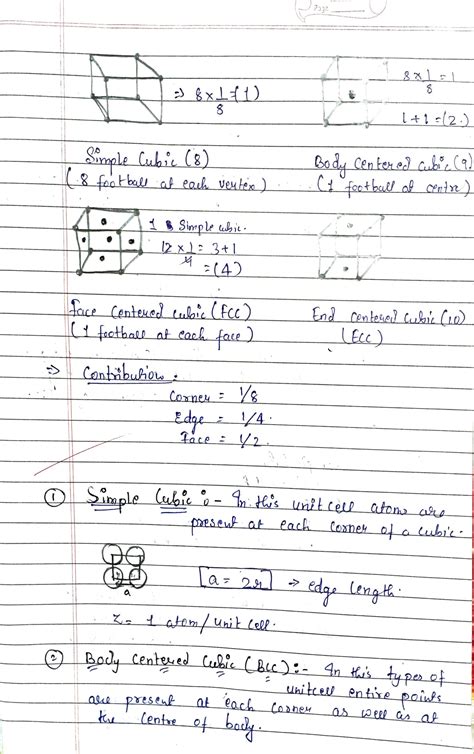 Page
⇒ 8 × 1/8 = (1)
8 × 1/8 = 1
1 + 1 = (2.)
Simple Cubic (8)
(8 football at each vertex)
Body Centered cubic (9)
(1 football at centre)
1 Simple cubic.
12 × 1/4 = 3+1
= (4)
Face Centered cubic (FCC)
(1 football at each face)
End Centered Cubic (10)
(ECC)
⇒ Contribution :
Corner = 1/8
Edge = 1/4.
Face = 1/2.
① Simple Cubic :- In this unit cell atoms are
present at each corner of a cubic.
a
a = 2r → edge length.
Z = 1 atom/unit cell.
② Body Centered Cubic (BCC) :- In this types of
unitcell entire points
are present at each corner as well as at
the centre of body.